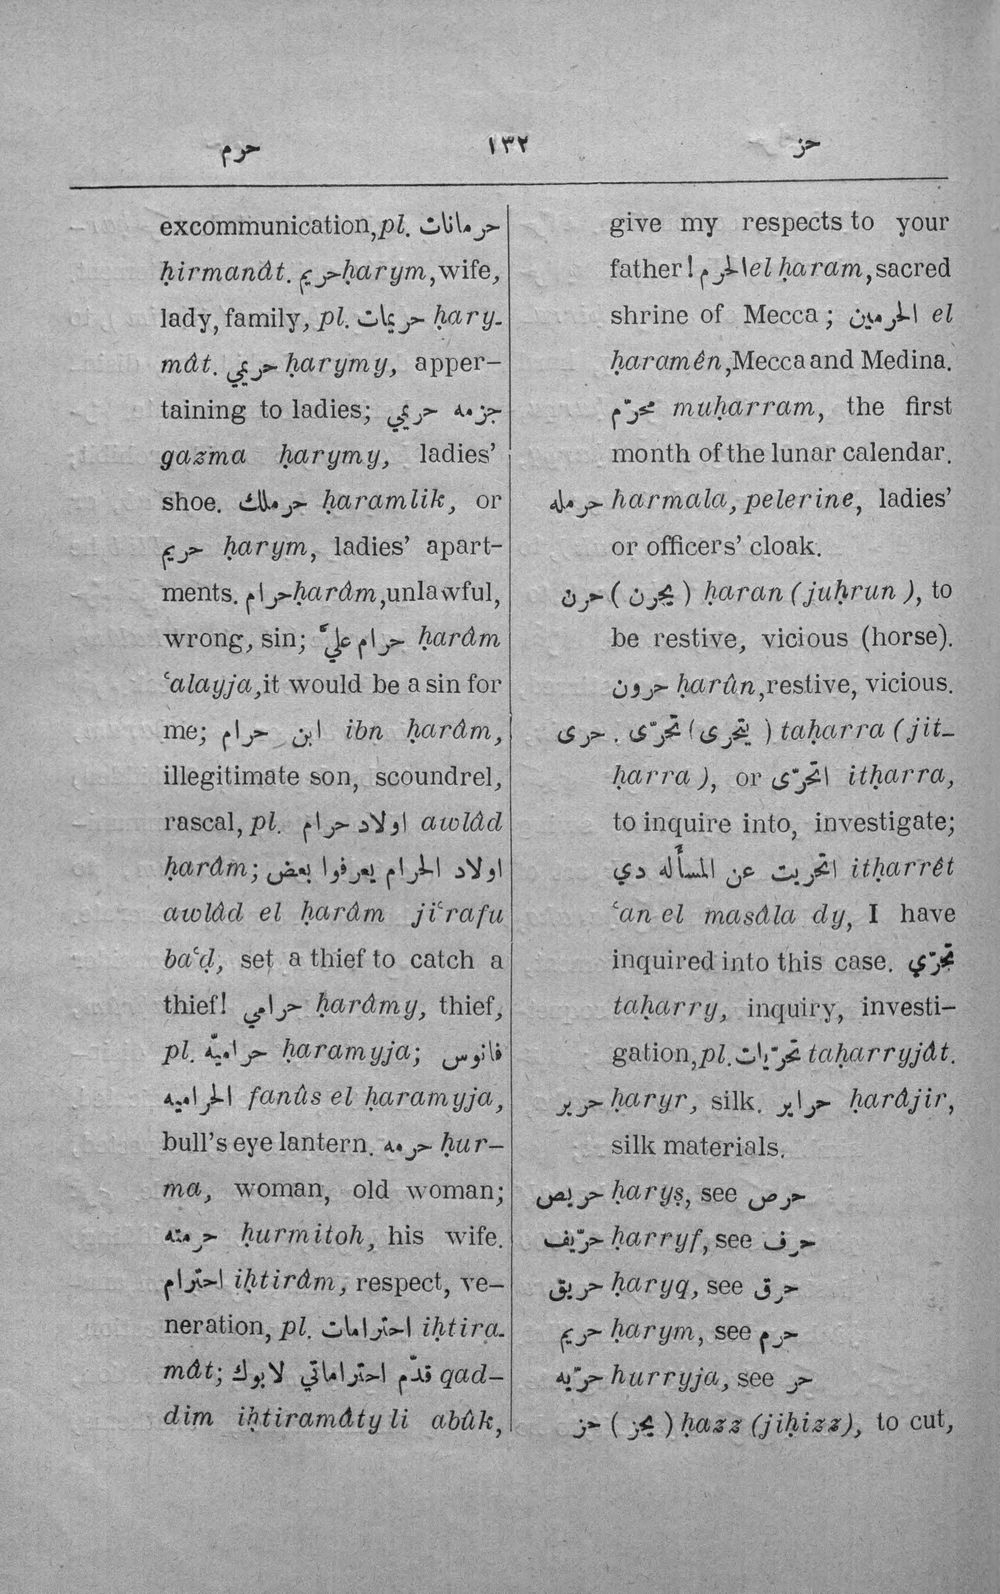 حرم ١٣٢ حز
excommunication, pl. حرمانات
ḥirmanât. حريم ḥarym, wife,
lady, family, pl. حريمات ḥary-
mât. حريمي ḥarymy, apper-
taining to ladies; جزمه حريمي
gazma ḥarymy, ladies’
shoe. حرملك ḥaramlik, or
حريم ḥarym, ladies’ apart-
ments. حرام ḥarâm, unlawful,
wrong, sin; حرام عليّ ḥarâm
ʿalayja, it would be a sin for
me; ابن حرام ibn ḥarâm,
illegitimate son, scoundrel,
rascal, pl. اولاد حرام awlâd
ḥarâm; اولاد الحرام يعرفوا بعض
awlâd el ḥarâm jiʿrafu
baʿḍ, set a thief to catch a
thief! حرامي ḥarâmy, thief,
pl. حراميّه ḥaramyja; فانوس
الحراميه fanûs el ḥaramyja,
bull’s eye lantern. حرمه ḥur-
ma, woman, old woman;
حرمته ḥurmitoh, his wife.
احترام iḥtirâm, respect, ve-
neration, pl. احترامات iḥtira-
mât; قدّم احتراماتي لابوك qad-
dim iḥtiramâty li abûk,
give my respects to your
father! الحرم el ḥaram, sacred
shrine of Mecca; الحرمين el
ḥaramên, Mecca and Medina.
محرّم muḥarram, the first
month of the lunar calendar.
حرمله ḥarmala, pelerine, ladies’
or officers’ cloak.
حرن (يحرن) ḥaran (juḥrun), to
be restive, vicious (horse).
حرون ḥarûn, restive, vicious.
حرى. تحرّى (يتحرى) taḥarra (jit-
ḥarra), or اتحرّى itḥarra,
to inquire into, investigate;
اتحريت عن المسأله دي itḥarrêt
ʿan el masâla dy, I have
inquired into this case. تحرّي
taḥarry, inquiry, investi-
gation, pl. تحرّيات taḥarryjât.
حرير ḥaryr, silk. حراير ḥarâjir,
silk materials.
حريص ḥaryṣ, see حرص
حرّيف ḥarryf, see حرف
حريق ḥaryq, see حرق
حريم ḥarym, see حرم
حرّيه ḥurryja, see حر
حز (يحز) ḥazz (jiḥizz), to cut,